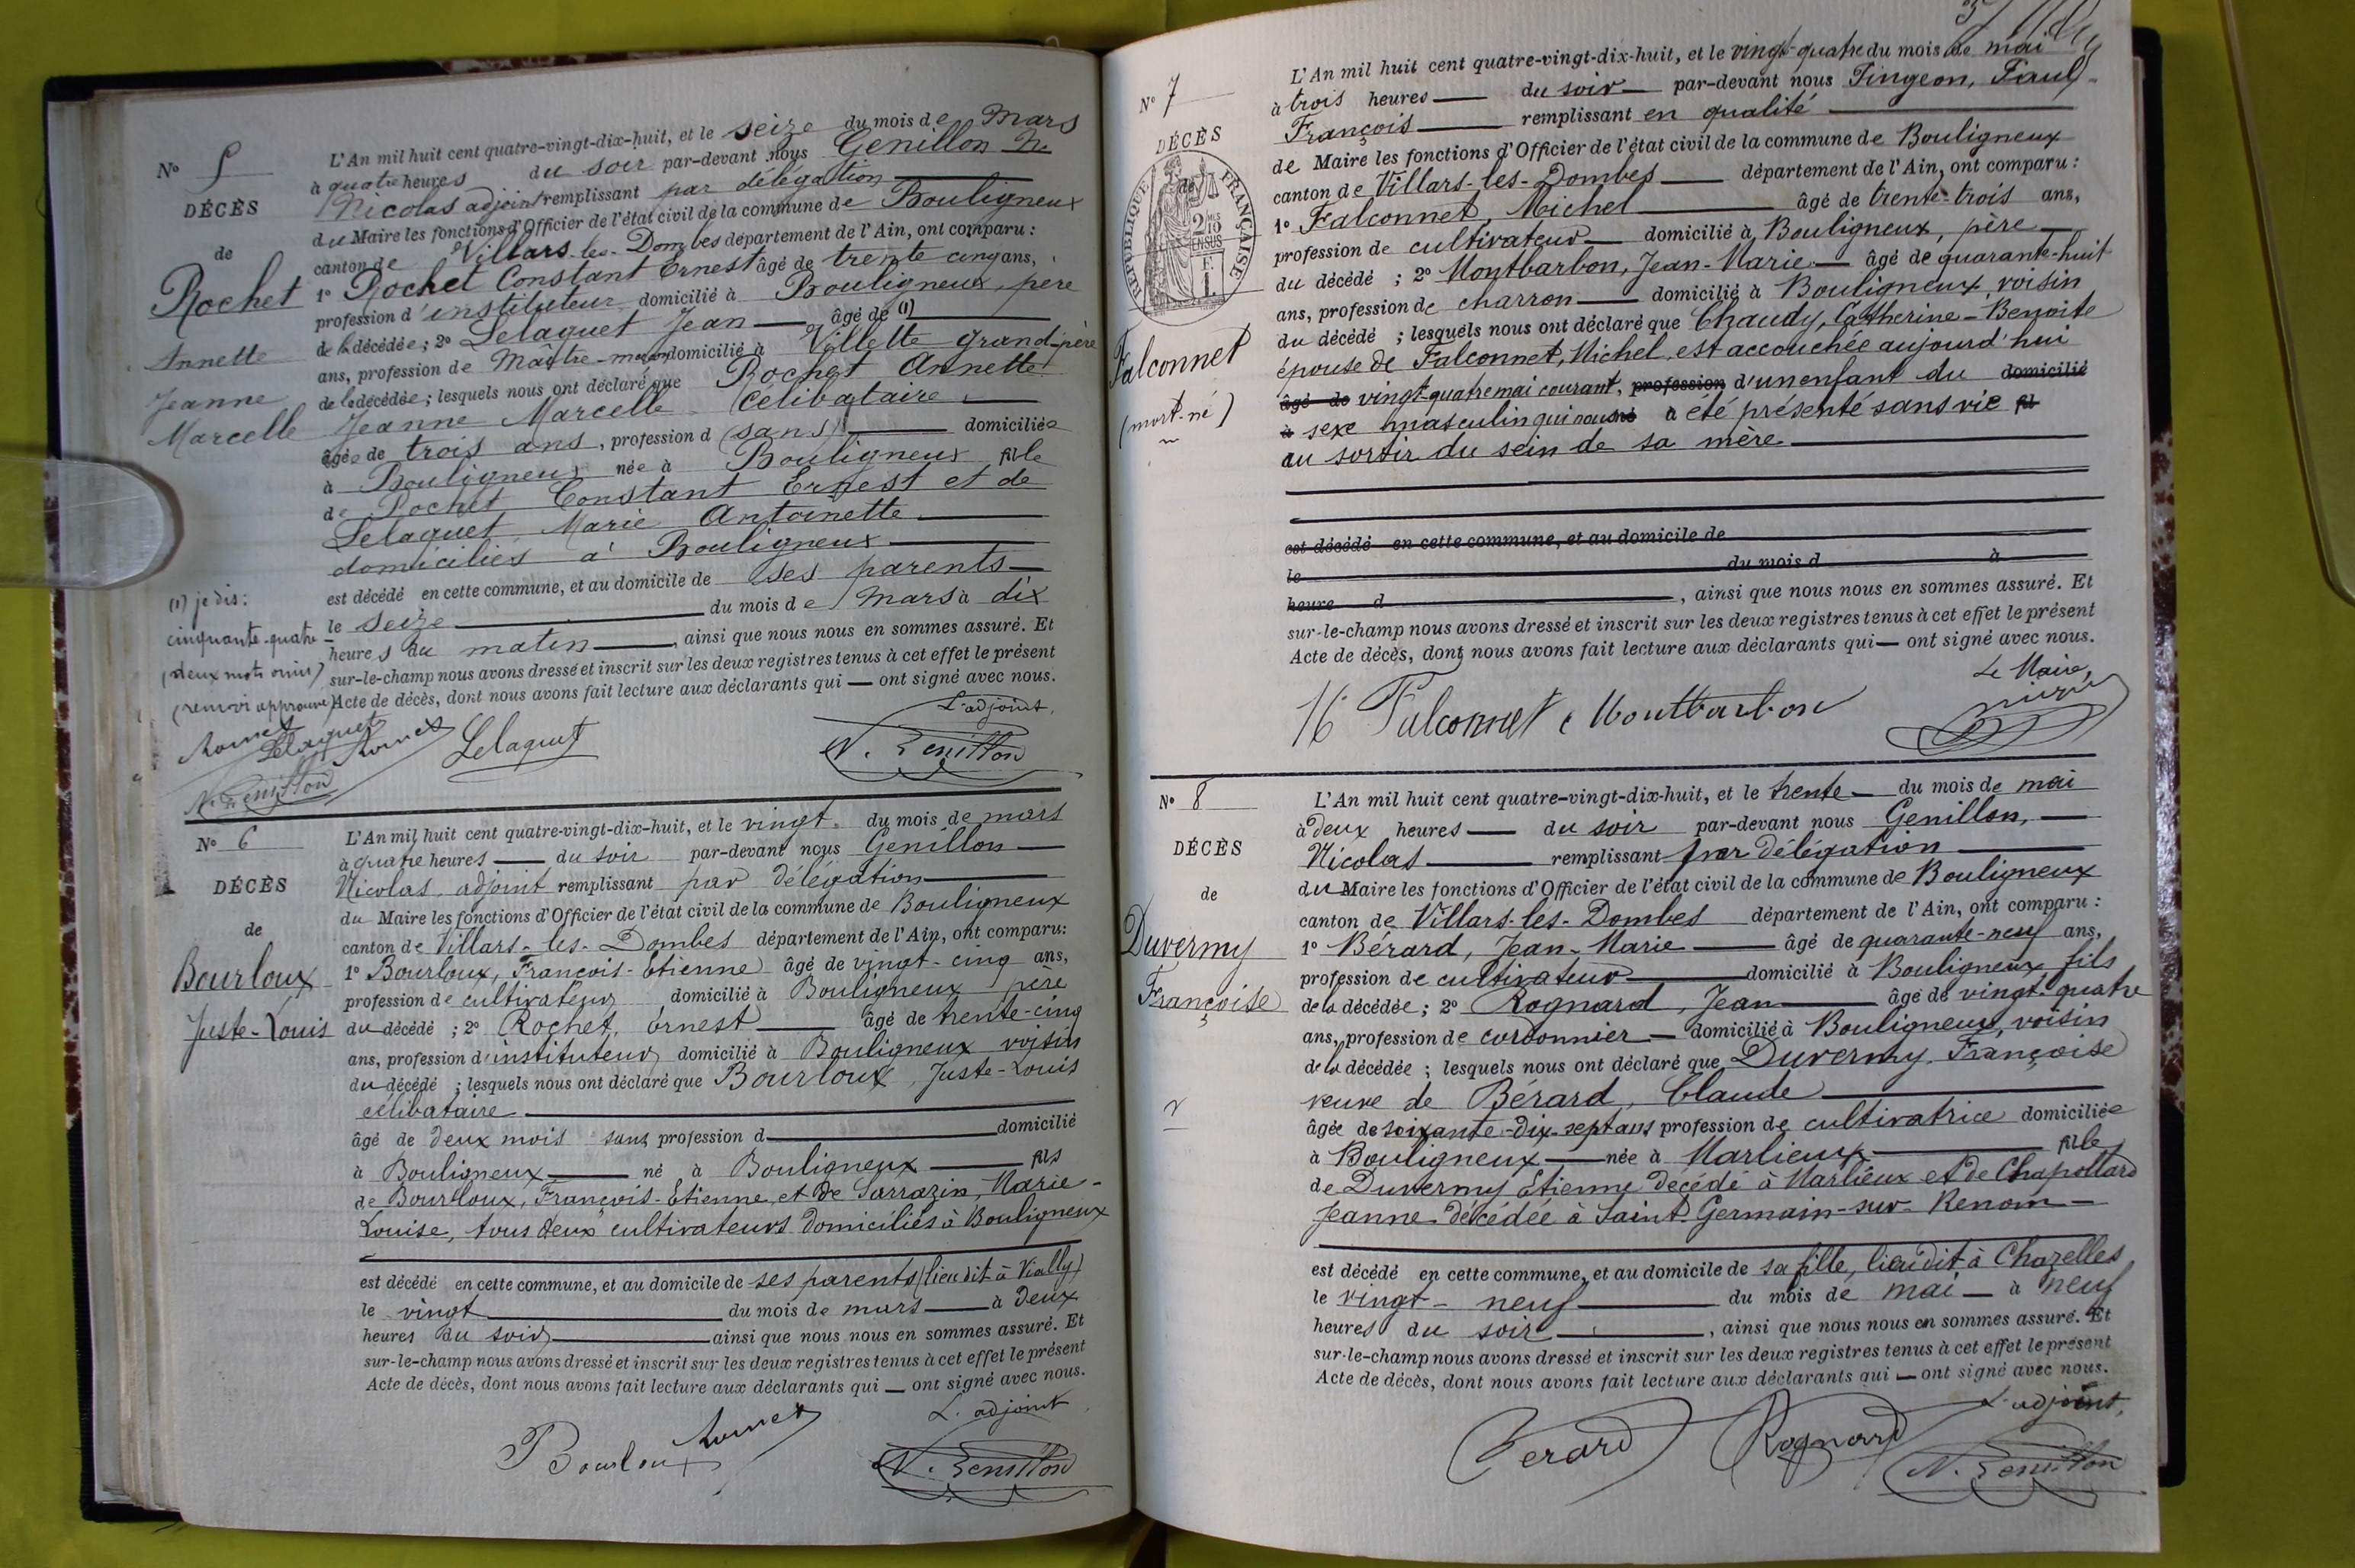 N° 5
DÉCÈS
de
Rochet
Annette
Jeanne
Marcelle
L'An mil huit cent quatre-vingt-dix-huit, et le seize du mois de Mars
à quatre heures du soir par-devant nous Genillon
Nicolas adjoint remplissant par délégation
du Maire les fonctions d'Officier de l'état civil de la commune de Bouligneux
canton de Villars-les-Dombes département de l'Ain, ont comparu :
1° Rochet Constant Ernest âgé de trente cinq ans,
profession d'instituteur domicilié à Bouligneux, père
de la décédée ; 2° Lelaquet Jean âgé de (1)
ans, profession de Maître-maçon domicilié à Villette grand-père
de la décédée ; lesquels nous ont déclaré que Rochet Annette
Jeanne Marcelle Célibataire
âgée de trois ans, profession d (sans) domiciliée
à Bouligneux née à Bouligneux fille
de Rochet Constant Ernest et de
Lelaquet, Marie Antoinette
domiciliés à Bouligneux
est décédé en cette commune, et au domicile de ses parents
le seize du mois de Mars à dix
heures du matin, ainsi que nous nous en sommes assuré. Et
sur-le-champ nous avons dressé et inscrit sur les deux registres tenus à cet effet le présent
Acte de décès, dont nous avons fait lecture aux déclarants qui — ont signé avec nous.
(1) je dis :
cinquante-quatre
(deux mots omis)
(renvoi approuvé)
Rochet
Lelaquet
Rochet
Lelaquet
L'adjoint,
N. Genillon
N. Genillon
N° 6
DÉCÈS
de
Bourloux
Juste-Louis
L'An mil huit cent quatre-vingt-dix-huit, et le vingt du mois de mars
à quatre heures — du soir par-devant nous Genillon
Nicolas, adjoint remplissant par délégation
du Maire les fonctions d'Officier de l'état civil de la commune de Bouligneux
canton de Villars-les-Dombes département de l'Ain, ont comparu :
1° Bourloux, François-Etienne âgé de vingt-cinq ans,
profession de cultivateur domicilié à Bouligneux père
du décédé ; 2° Rochet, Ernest — âgé de trente-cinq
ans, profession d'instituteur domicilié à Bouligneux voisin
du décédé ; lesquels nous ont déclaré que Bourloux, Juste-Louis
célibataire
âgé de deux mois sans profession d domicilié
à Bouligneux — né à Bouligneux — fils
de Bourloux, François-Etienne et de Sarrazin, Marie-
Louise, tous deux cultivateurs domiciliés à Bouligneux
est décédé en cette commune, et au domicile de ses parents (lieu dit à Vially)
le vingt du mois de mars — à deux
heures du soir ainsi que nous nous en sommes assuré. Et
sur-le-champ nous avons dressé et inscrit sur les deux registres tenus à cet effet le présent
Acte de décès, dont nous avons fait lecture aux déclarants qui — ont signé avec nous.
Bourloux
Rochet
L'adjoint
N. Genillon
N° 7
DÉCÈS
de
RÉPUBLIQUE FRANÇAISE
2/10 EN SUS
Falconnet
(mort-né)
L'An mil huit cent quatre-vingt-dix-huit, et le vingt-quatre du mois de mai
à trois heures — du soir — par-devant nous Pingeon, Paul-
François — remplissant en qualité
de Maire les fonctions d'Officier de l'état civil de la commune de Bouligneux
canton de Villars-les-Dombes — département de l'Ain, ont comparu :
1° Falconnet, Michel — âgé de trente-trois ans,
profession de cultivateur — domicilié à Bouligneux, père
du décédé ; 2° Montbarbon, Jean-Marie — âgé de quarante-huit
ans, profession de charron — domicilié à Bouligneux voisin
du décédé ; lesquels nous ont déclaré que Chaudy, Catherine-Benoite
épouse de Falconnet, Michel est accouchée aujourd'hui
âgé de vingt-quatre mai courant, profession d'un enfant du domicilié
à sexe masculin qui nous né a été présenté sans vie fil
au sortir du sein de sa mère
est décédé en cette commune, et au domicile de
le du mois d à
heure d , ainsi que nous nous en sommes assuré. Et
sur-le-champ nous avons dressé et inscrit sur les deux registres tenus à cet effet le présent
Acte de décès, dont nous avons fait lecture aux déclarants qui — ont signé avec nous.
Falconnet Montbarbon
Le Maire,
N° 8
DÉCÈS
de
Duvermy
Françoise
L'An mil huit cent quatre-vingt-dix-huit, et le trente — du mois de mai
à deux heures — du soir par-devant nous Genillon, —
Nicolas — remplissant par délégation
du Maire les fonctions d'Officier de l'état civil de la commune de Bouligneux
canton de Villars-les-Dombes département de l'Ain, ont comparu :
1° Bérard, Jean-Marie — âgé de quarante-neuf ans,
profession de cultivateur — domicilié à Bouligneux fils
de la décédée ; 2° Rognard, Jean — âgé de vingt-quatre
ans, profession de cordonnier — domicilié à Bouligneux, voisin
de la décédée ; lesquels nous ont déclaré que Duvermy, Françoise
veuve de Bérard, Claude
âgée de soixante-dix-sept ans profession de cultivatrice domiciliée
à Bouligneux — née à Marlieux — fille
de Duvermy Etienne décédé à Marlieux et de Chapollard
Jeanne décédée à Saint-Germain-sur-Renom —
est décédé en cette commune, et au domicile de sa fille, lieu dit à Chazelles
le vingt-neuf — du mois de mai — à neuf
heures du soir —, ainsi que nous nous en sommes assuré. Et
sur-le-champ nous avons dressé et inscrit sur les deux registres tenus à cet effet le présent
Acte de décès, dont nous avons fait lecture aux déclarants qui — ont signé avec nous.
Berard Rognard
L'adjoint,
N. Genillon